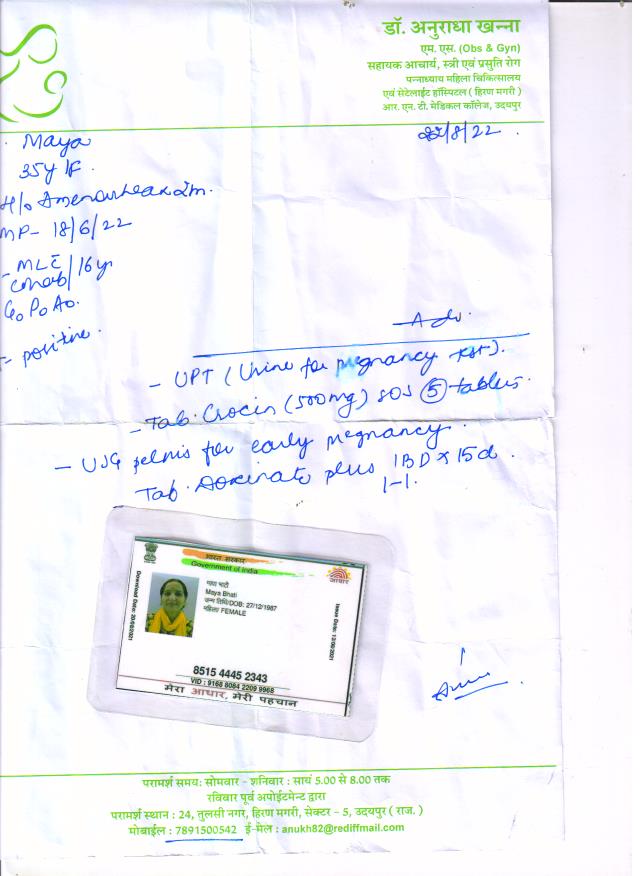 डॉ. अनुराधा खन्ना
एम. एस. (Obs & Gyn)
सहायक आचार्य, स्त्री एवं प्रसुति रोग
पन्नाध्याय महिला चिकित्सालय
एवं सेटेलाईट हॉस्पिटल ( हिरण मगरी )
आर. एन. टी. मेडिकल कॉलेज, उदयपुर
Maya
22/8/22
35y/F
H/o Amenorrhea x 2m.
MP- 18/6/22
- MLE
cohab/16yr
G₀P₀A₀.
- positive.
Adv.
- UPT (Urine for pregnancy test).
- Tab. Crocin (500mg) SOS ⑤ tablets.
- USG pelvis for early pregnancy.
Tab. Doxinate plus 1BD x 15d.
1-1.
भारत सरकार
Government of India
आधार
माया भाटी
Maya Bhati
जन्म तिथि/DOB: 27/12/1987
महिला/ FEMALE
Download Date: 20/08/2021
Issue Date: 13/08/2021
8515 4445 2343
VID : 9168 8084 2209 9968
मेरा आधार, मेरी पहचान
परामर्श समय: सोमवार - शनिवार : सायं 5.00 से 8.00 तक
रविवार पूर्व अपोईंटमेन्ट द्वारा
परामर्श स्थान : 24, तुलसी नगर, हिरण मगरी, सेक्टर - 5, उदयपुर ( राज. )
मोबाईल : 7891500542 ई-मेल : anukh82@rediffmail.com